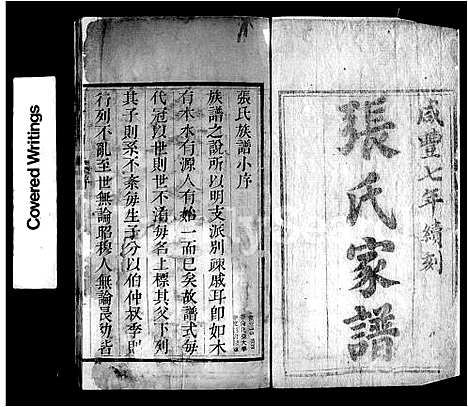 咸豐七年續刻
張氏家譜
張氏族譜小序
族譜之說所以明支派別疎戚耳即如木
有本水有源人有始一而已矣故譜式每
代冠以世則世不淆每名上標其父下列
其子則系不紊每生子分以伯仲叔季則
行列不亂至世無論昭穆人無論長幼皆
Covered Writings